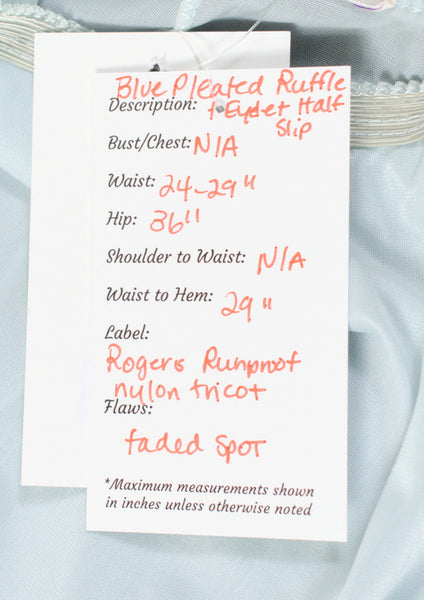 Blue Pleated Ruffle
Description: + Eyelet Half
Slip
Bust/Chest: N/A
Waist: 24-29"
Hip: 36"
Shoulder to Waist: N/A
Waist to Hem: 29"
Label:
Rogers Runproof
nylon tricot
Flaws:
faded spot
*Maximum measurements shown
in inches unless otherwise noted